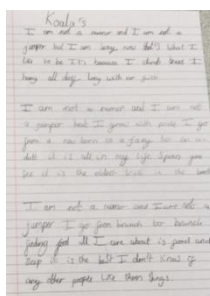 Koala's
I am not a runner and I am not a
jumper but I am lazy now that's what I
like to be It's because I climb trees I
hang all day long with our
I am not a runner and I am not
a jumper but I grow with pride I go
from a new born to a joey to an
it is all in my life span you
see it is the oldest in the
I am not a runner and I am not a
jumper I go from branch to branch
finding food all I care about is food and
sleep it is the best I don't know if
any other people like these things.